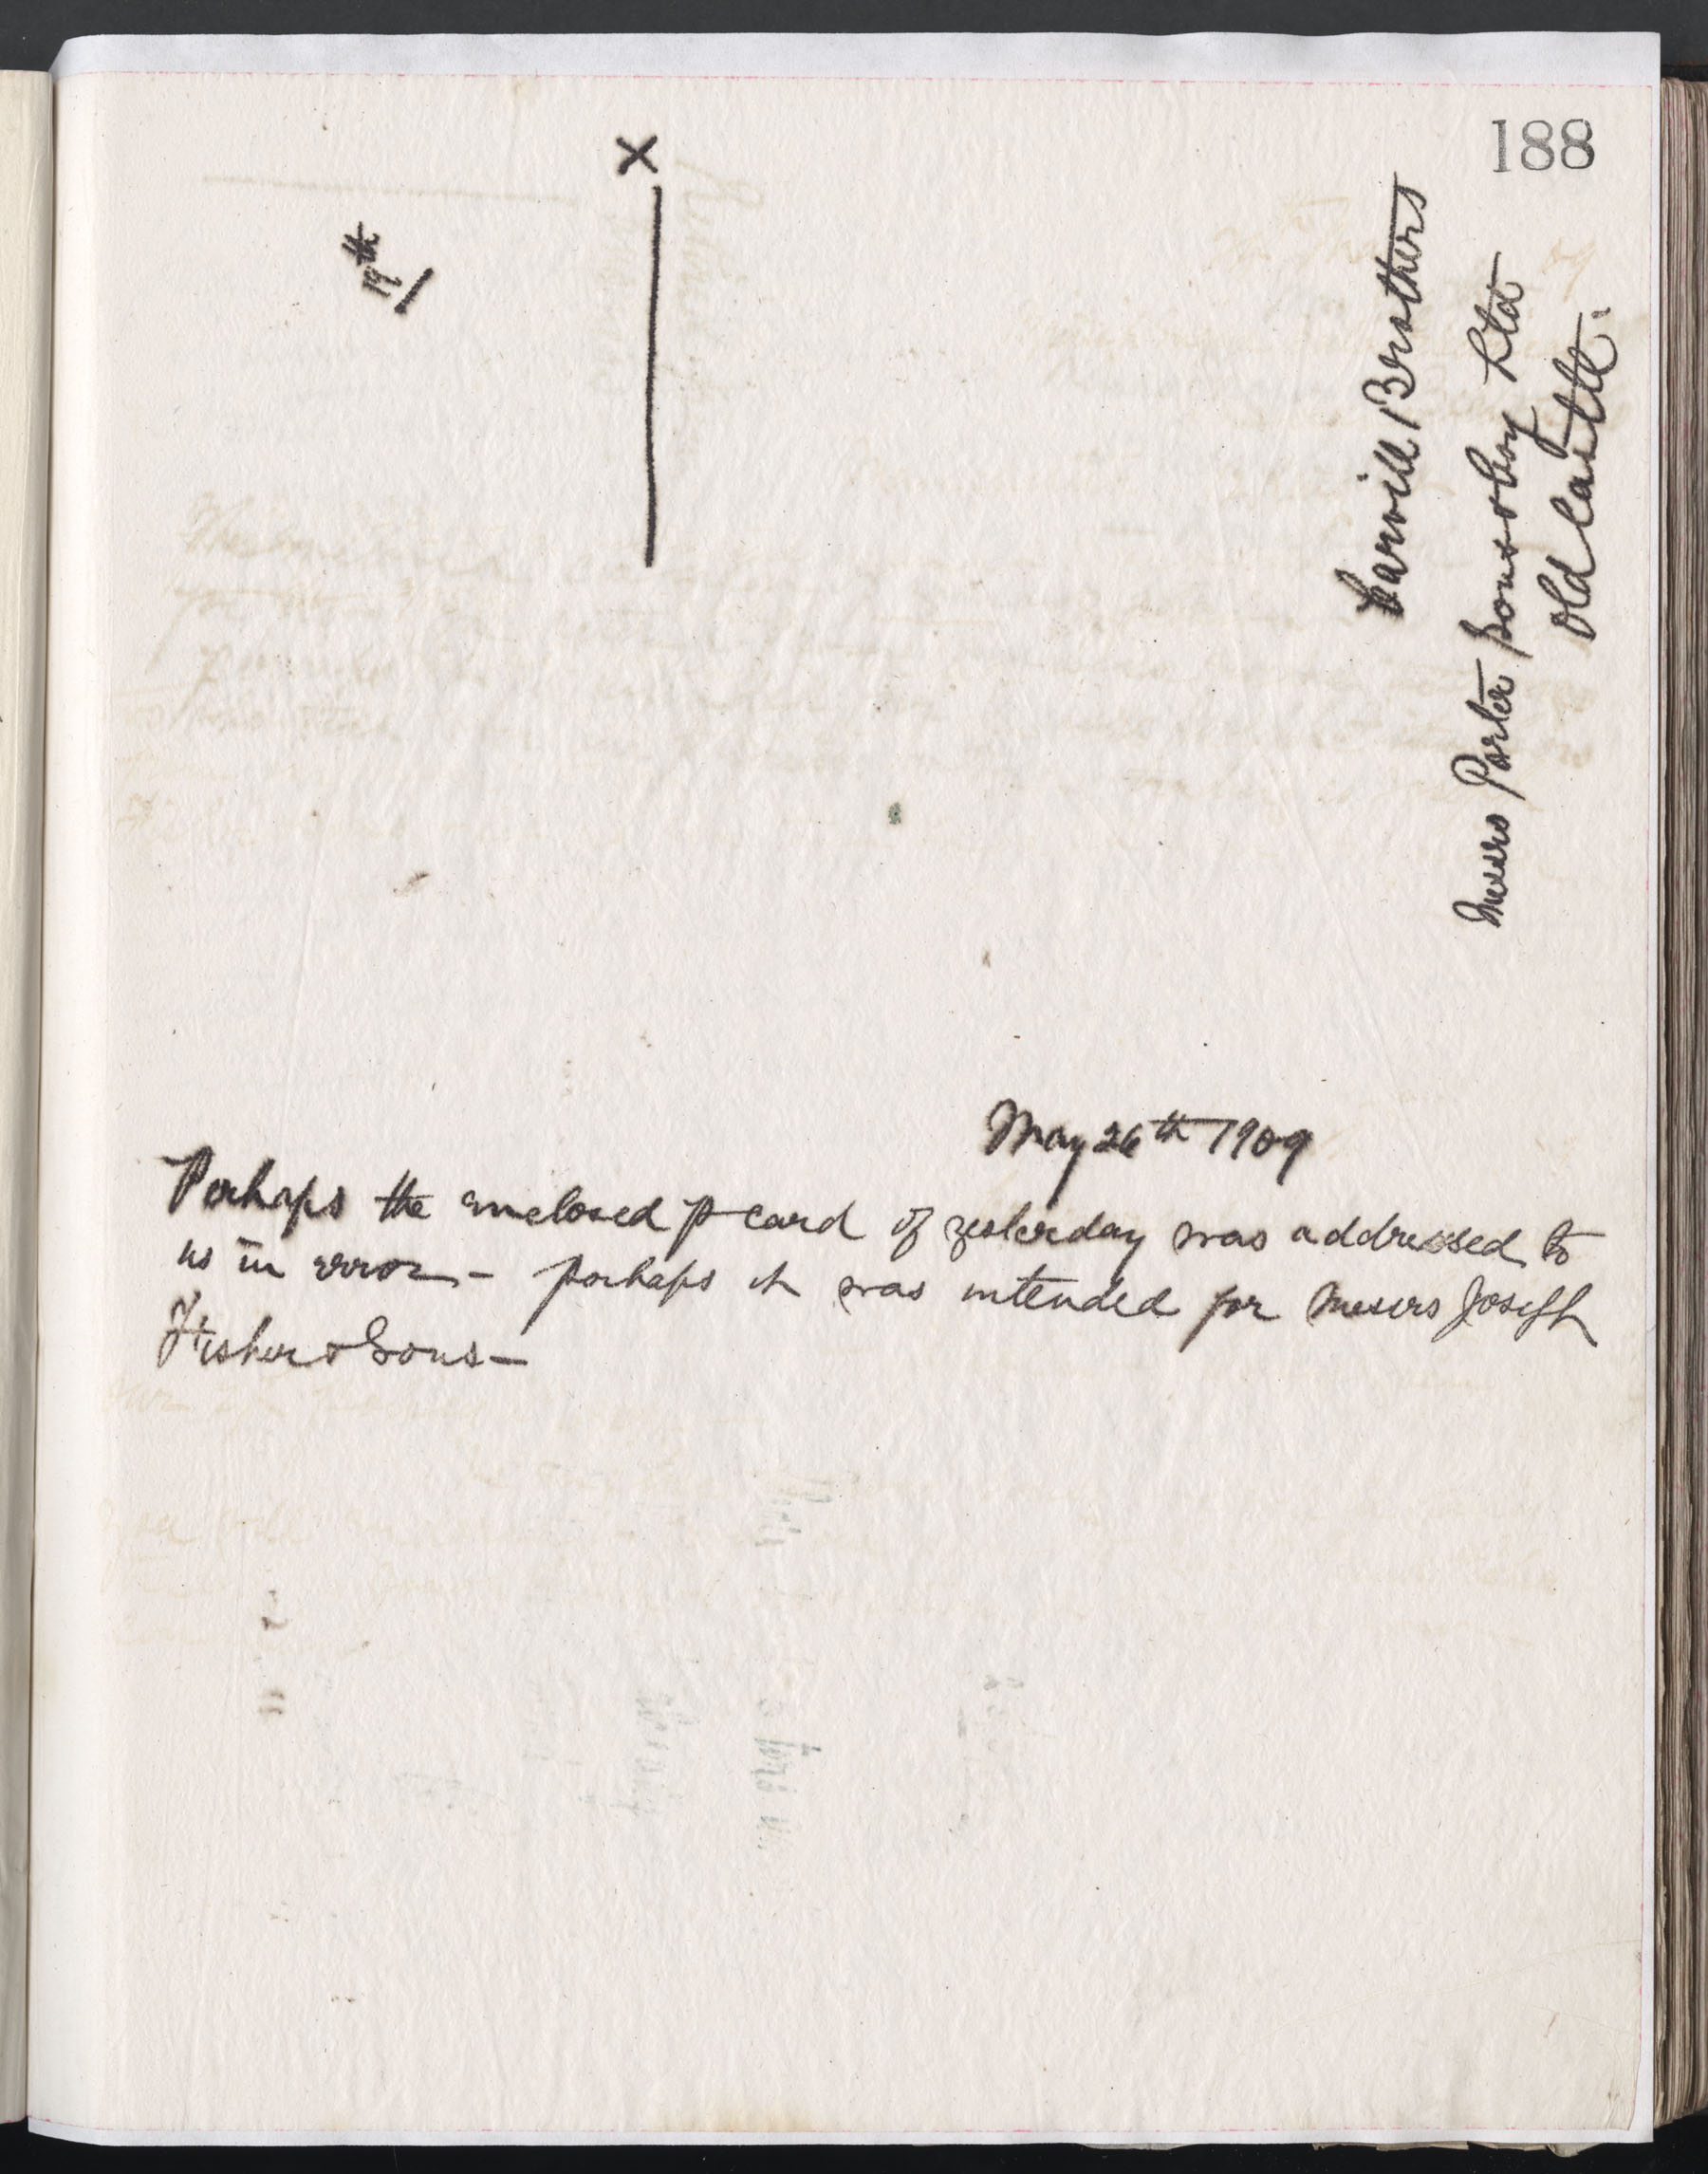 188
X
19th
Carvill Brothers
Messrs Porter Sons & Coy Ltd
Old Castle.
May 26th 1909
Perhaps the enclosed p card of yesterday was addressed to
us in error - perhaps it was intended for Messrs Joseph
Fisher & Sons -